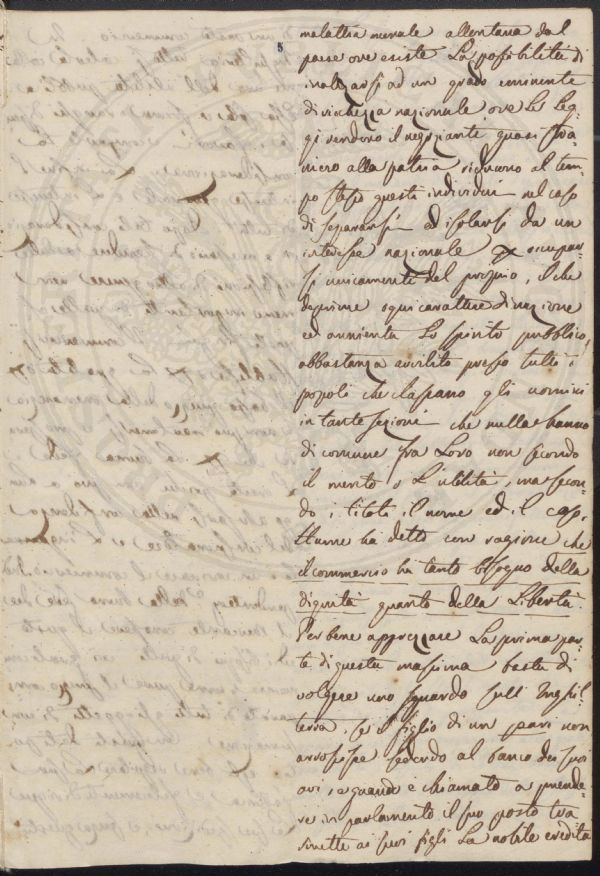 malattia morale allontana dal
paese ove esiste la possibilità di
inalzarsi ad un grado eminente
di richezza nazionale ove le leg-
gi rendono il negoziante quasi stra-
niero alla patria riducono al tem-
po stesso questi individui nel caso
di separarsi ed isolarsi da un
interesse nazionale occupar-
si unicamente del proprio, il che
deprime ogni carattere di nazione
ed annienta lo spirito pubblico,
abbastanza avvilito presso tutti i
popoli che classano gli uomini
in tante sezioni che nulla hanno
di comune fra loro non secondo
il merito o l'utilità, ma secon-
do i titoli il nome ed il caso.
Hume ha detto con ragione che
il commercio ha tanto bisogno della
dignità quanto della Libertà.
Per bene apprezzare la prima par-
te di questa massima basta di
volgere uno sguardo sull'Inghil-
terra, se il figlio di un pari non
arrossisse sedendo al banco dei suoi
avi, e quando è chiamato a prende-
re in parlamento il suo posto tra
smette ai suoi figli la nobile eredità